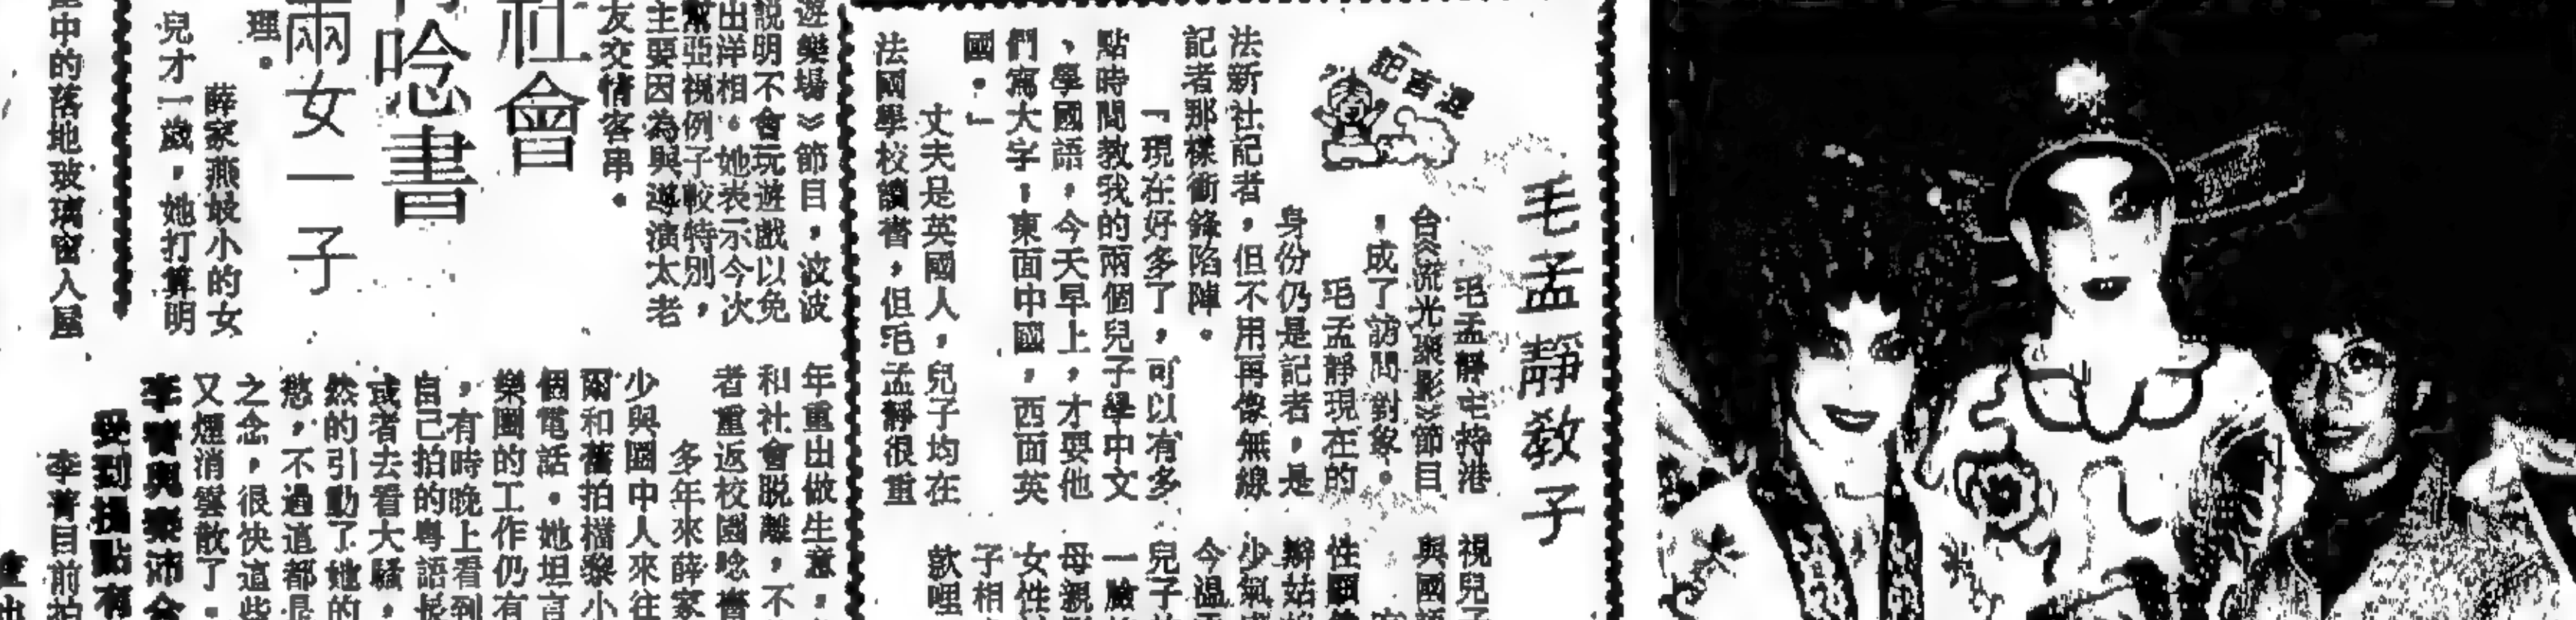 毛孟靜教子
毛孟靜主持港
台《流光聚影》節目
，成了訪問對象。
毛孟靜現在的
身份仍是記者，是
法新社記者，但不用再像無線
記者那樣衝鋒陷陣。
「現在好多了，可以有多
點時間教我的兩個兒子學中文
，學國語，今天早上，才要他
們寫大字，東面中國，西面英
國。」
丈夫是英國人，兒子均在
法國學校讀書，但毛孟靜很重
視兒子
與國
性國
辦姑
少氣
今溫
兒子
一臉
母親
女性
子相
歎哩
遊樂場》節目，波波
說明不會玩遊戲以免
出洋相。她表示今次
幫亞視例子較特別，
主要因為與導演太老
友交情客串。
社會
唸書
兩女一子
年重出做生意，
和社會脫離，不
者重返校園唸書
多年來薛家
少與圈中人來往
爾和舊拍檔黎小
個電話。她坦言
樂圈的工作仍有
，有時晚上看到
自己拍的粵語長
或者去看大騷，
然的引動了她的
慾，不過這都是
之念，很快這些
又煙消雲散了。
理。
薛家燕最小的女
兒才一歲，她打算明
中的落地玻璃窗入屋
受到指點有
李菁目前拍